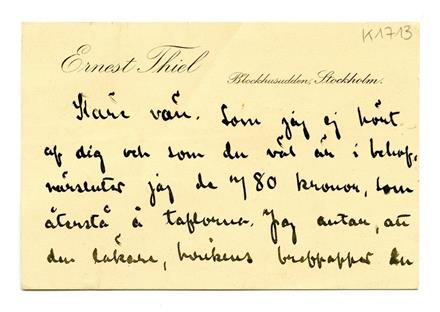 K1713
Ernest Thiel
Blockhusudden, Stockholm.
Käre vän. Som jag ej hört
af dig och som du väl är i behof,
närsluter jag de 80 kronor, som
återstå å taflorna. Jag antar, att
den läkare, hvilkens brefpapper du